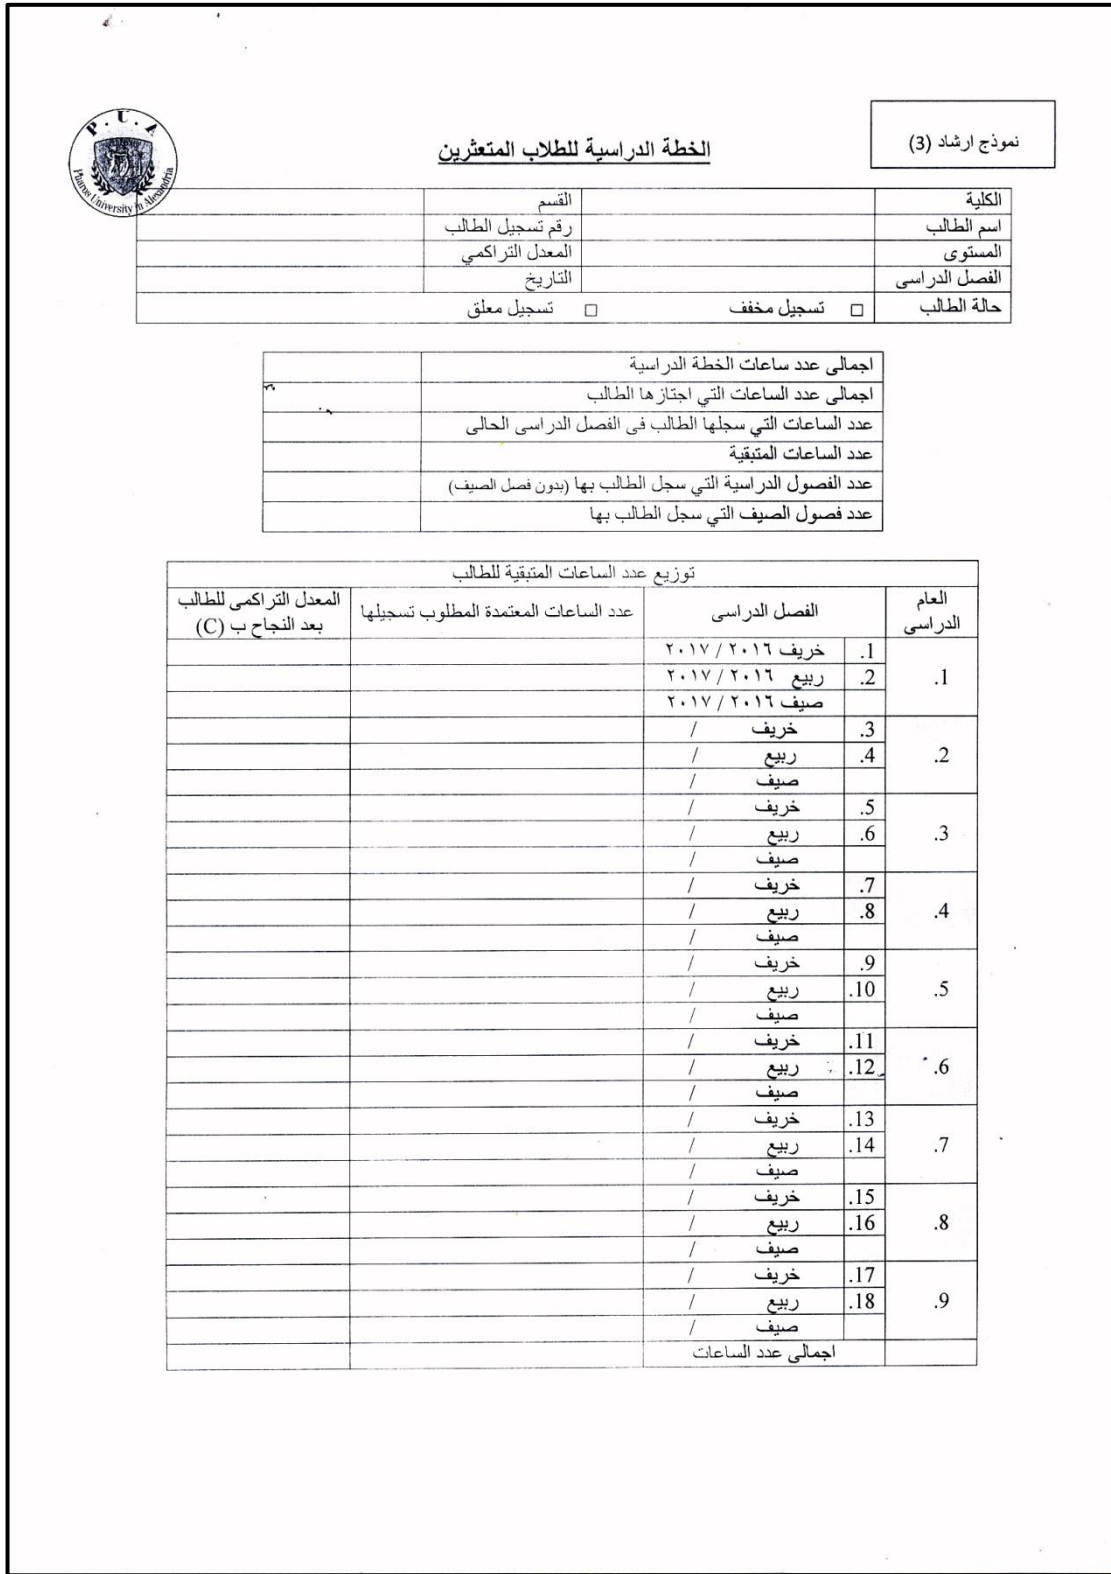 نموذج ارشاد (3)
P.U.A
Pharos University in Alexandria
الخطة الدراسية للطلاب المتعثرين
الكلية القسم
اسم الطالب رقم تسجيل الطالب
المستوى المعدل التراكمي
الفصل الدراسى التاريخ
حالة الطالب □ تسجيل مخفف □ تسجيل معلق
اجمالى عدد ساعات الخطة الدراسية
اجمالى عدد الساعات التي اجتازها الطالب
عدد الساعات التي سجلها الطالب فى الفصل الدراسى الحالى
عدد الساعات المتبقية
عدد الفصول الدراسية التي سجل الطالب بها (بدون فصل الصيف)
عدد فصول الصيف التي سجل الطالب بها
توزيع عدد الساعات المتبقية للطالب
العام الدراسى الفصل الدراسى عدد الساعات المعتمدة المطلوب تسجيلها المعدل التراكمى للطالب بعد النجاح ب (C)
.1 .1 خريف ٢٠١٦ / ٢٠١٧
.2 ربيع ٢٠١٦ / ٢٠١٧
صيف ٢٠١٦ / ٢٠١٧
.2 .3 خريف /
.4 ربيع /
صيف /
.3 .5 خريف /
.6 ربيع /
صيف /
.4 .7 خريف /
.8 ربيع /
صيف /
.5 .9 خريف /
.10 ربيع /
صيف /
.6 .11 خريف /
.12 ربيع /
صيف /
.7 .13 خريف /
.14 ربيع /
صيف /
.8 .15 خريف /
.16 ربيع /
صيف /
.9 .17 خريف /
.18 ربيع /
صيف /
اجمالى عدد الساعات